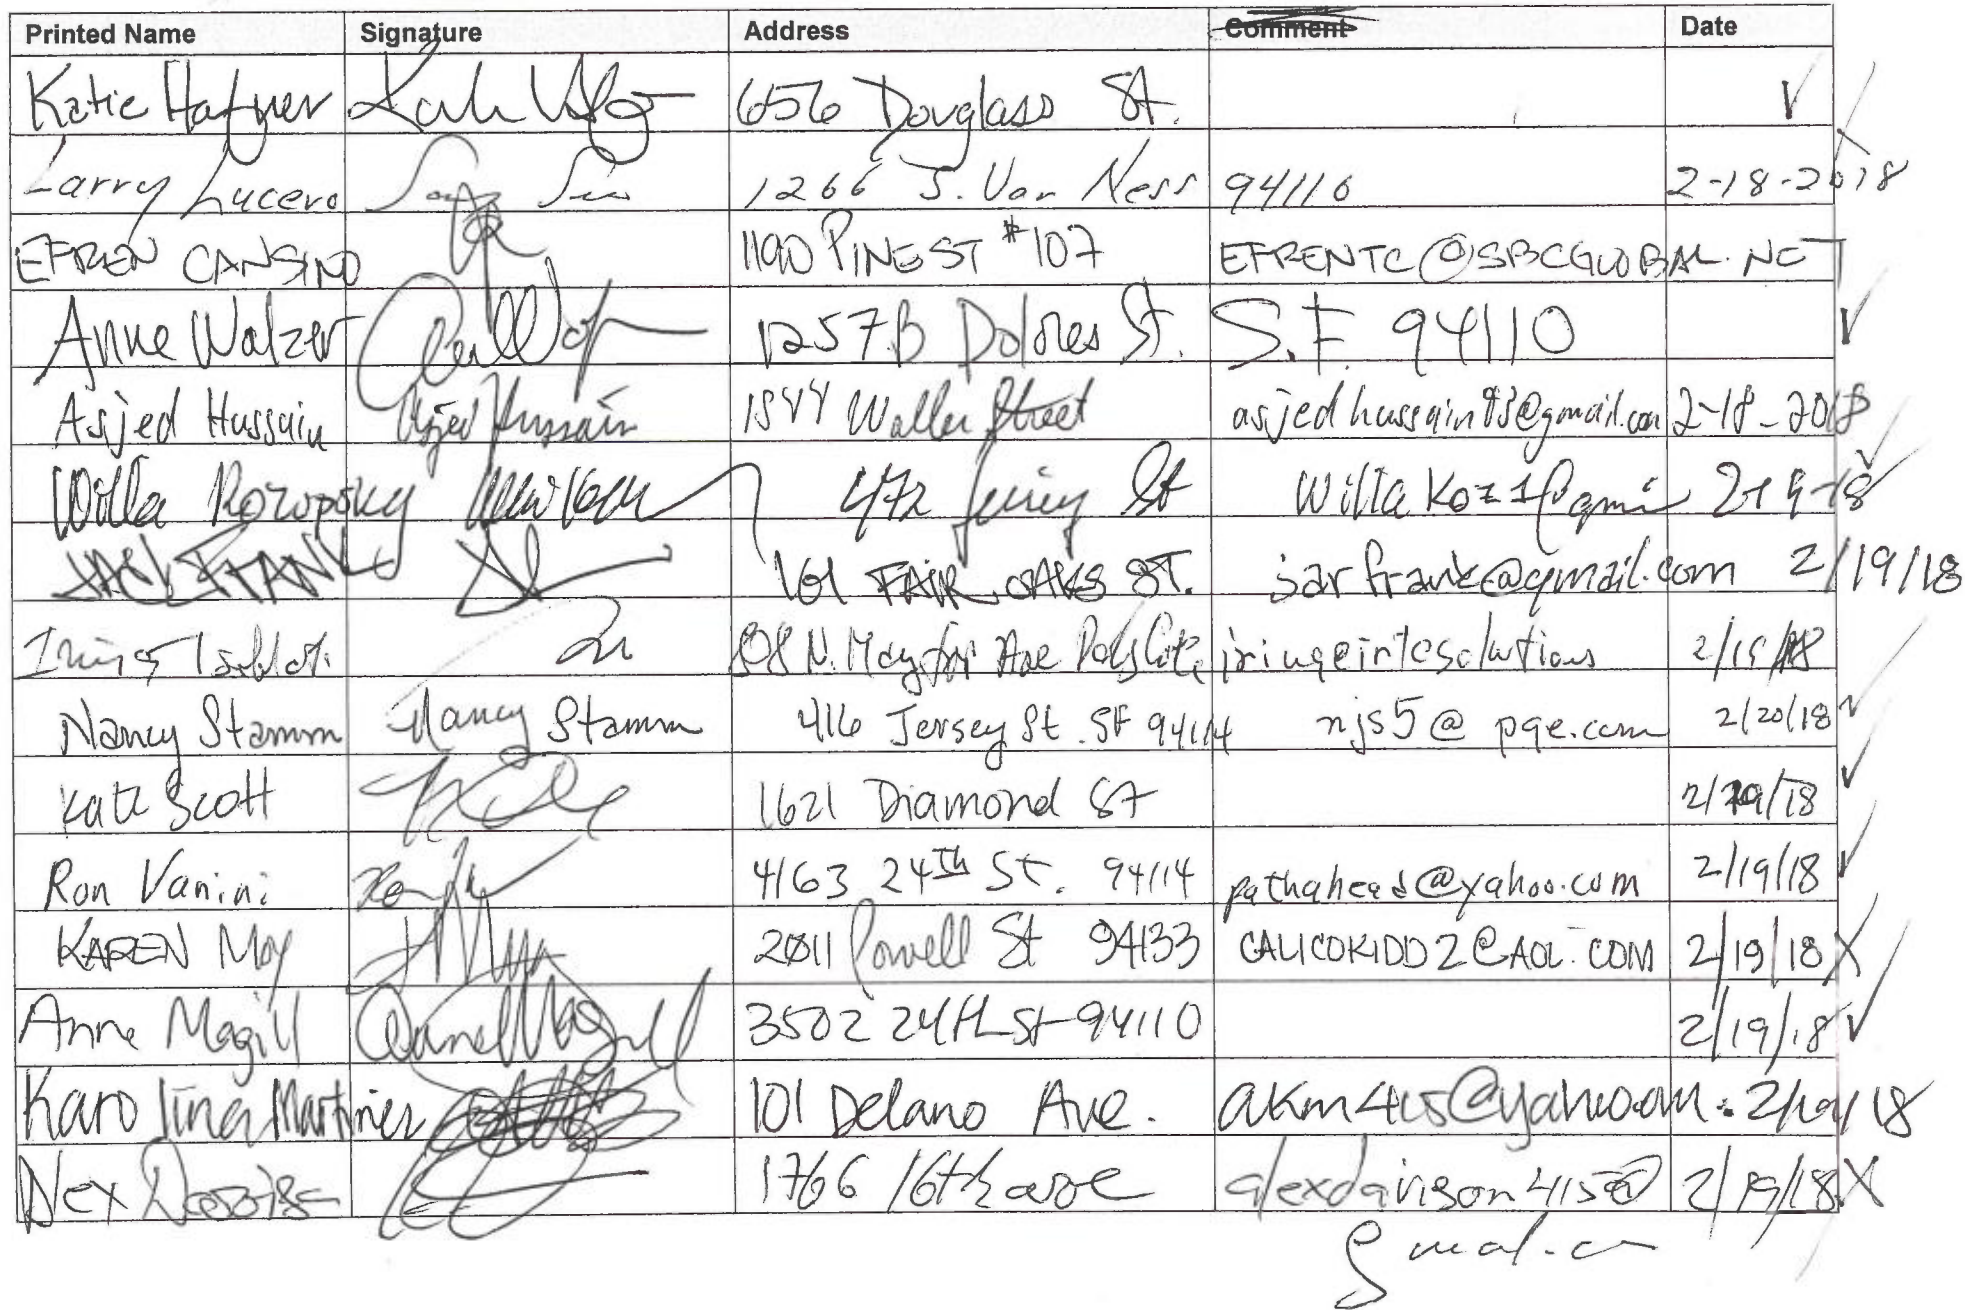 Printed Name Signature Address Comment Date
Katie Hafner 656 Douglass St.
Larry Lucero 1266 S. Van Ness 94110 2-18-2018
EFREN CANSINO 1190 PINE ST #107 EFRENTC@SBCGLOBAL.NET
Anne Walzer 1257B Dolores St. S.F. 94110
Asjed Hussain Asjed Hussain 1844 Waller Street asjedhussain93@gmail.com 2-18-2018
Willa 472 Jersey St
JACK FRANK 161 FAIR OAKS ST. jarfrank@gmail.com 2/19/18
N. Mayfair Ave Daly City
Nancy Stamm Nancy Stamm 416 Jersey St. SF 94114 njs5@pge.com 2/20/18
Kate Scott 1621 Diamond St 2/19/18
Ron Vanini 4163 24th St. 94114 pathahead@yahoo.com 2/19/18
KAREN Moy 2011 Powell St 94133 CALICOKIDD2@AOL.COM 2/19/18 X
Anne Magill Anne Magill 3502 24th St 94110 2/19/18
Karolina Martinez 101 Delano Ave. 2/19/18
1766 16th ave alexdavison415@ 2/19/18 X